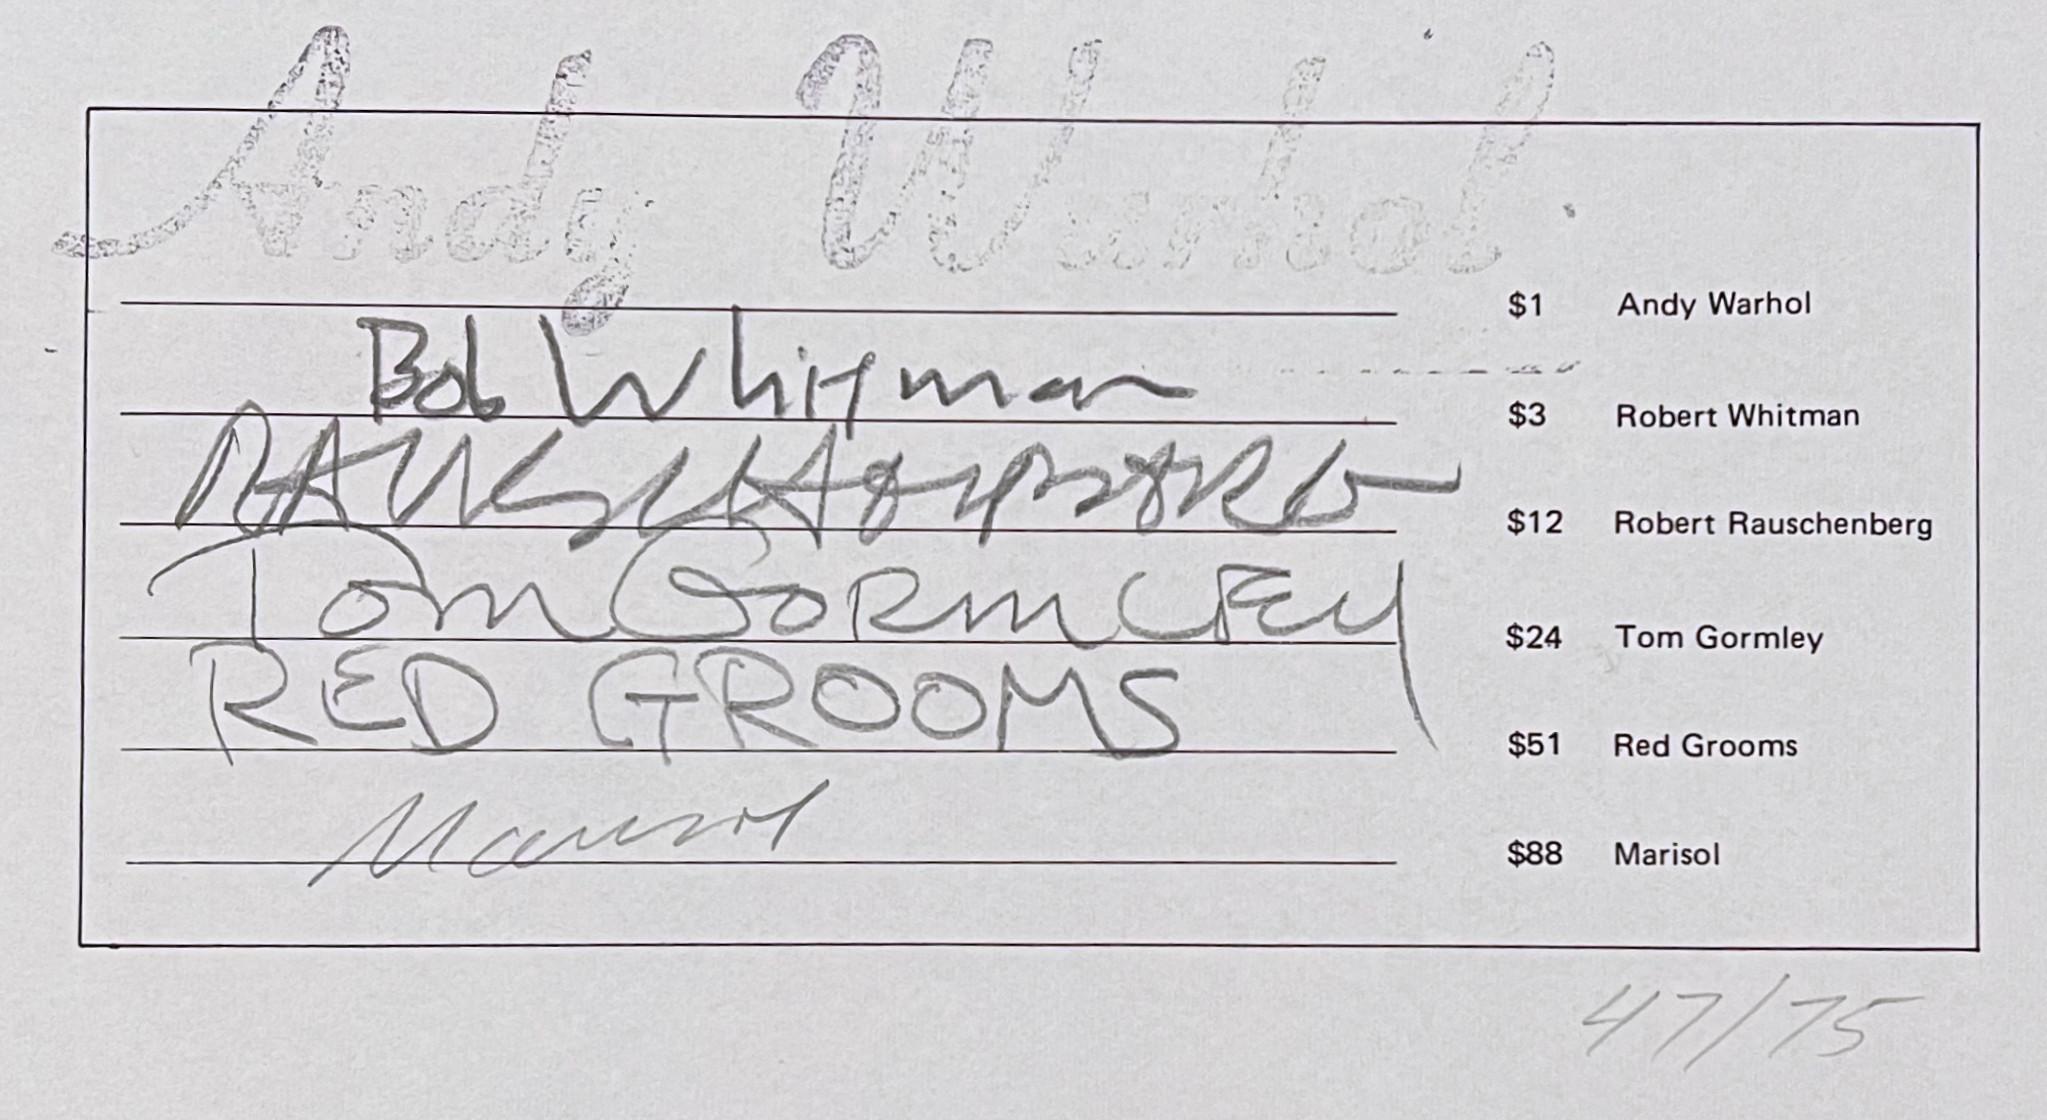 Andy Warhol
$1 Andy Warhol
Bob Whitman
$3 Robert Whitman
RAUSCHENBERG
$12 Robert Rauschenberg
Tom Gormley
$24 Tom Gormley
RED GROOMS
$51 Red Grooms
Marisol
$88 Marisol
47/75